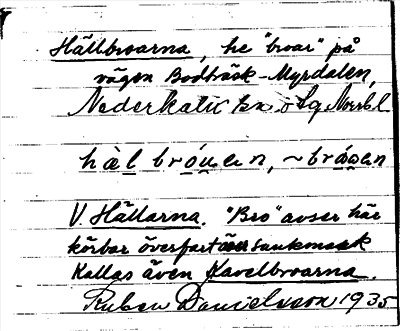 Hällbroarna, he "broar" på
vägen Bodträsk-Myrdalen,
Nederkalix sn ö Lg Norrbl
hàl bróuạn, ~brọ́ạn
V. Hällarna. "Bro" avser här
körbar överfart över sankmark
Kallas även Kavelbroarna.
Ruben Danielsson 1935